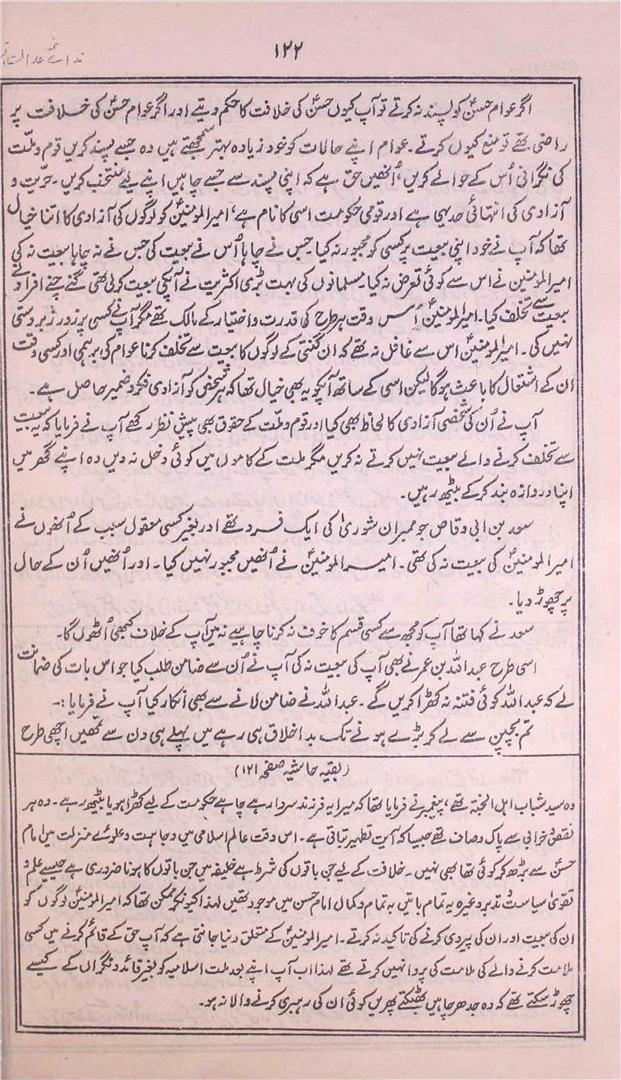 ندائے عدالت
۱۲۲
اگر عوام حسنؑ کو پسند نہ کرتے تو آپ کیوں حسنؑ کی خلافت کا حکم دیتے اور اگر عوام حسنؑ کی خلافت پر
راضی تھے تو منع کیوں کرتے۔ عوام اپنے حالات کو خود زیادہ بہتر سمجھتے ہیں وہ جسے پسند کریں قوم و ملت
کی نگرانی اُس کے حوالے کریں، اُنھیں حق ہے کہ اپنی پسند سے جسے چاہیں اپنے لیے منتخب کریں۔ حریت و
آزادی کی انتہائی حد یہی ہے اور قومی حکومت اسی کا نام ہے، امیر المومنینؑ کو لوگوں کی آزادی کا اتنا خیال
تھا کہ آپ نے خود اپنی بیعت پر کسی کو مجبور نہ کیا جس نے چاہا اُس نے بیعت کی جس نے نہ چاہا بیعت نہ کی
امیر المومنین نے اس سے کوئی تعرض نہ کیا۔ مسلمانوں کی بہت بڑی اکثریت نے آپکی بیعت کر لی تھی گنے چنے افراد نے
بیعت سے تخلف کیا۔ امیر المومنینؑ اُس وقت ہر طرح کی قدرت و اختیار کے مالک تھے مگر آپ نے کسی پر زور زبردستی
نہیں کی۔ امیر المومنینؑ اس سے غافل نہ تھے کہ ان گنتی کے لوگوں کا بیعت سے تخلف کرنا عوام کی برہمی اور کسی وقت
ان کے اشتعال کا باعث ہوگا لیکن اسی کے ساتھ آپکو یہ بھی خیال تھا کہ ہر شخص کو آزادی فکر و ضمیر حاصل ہے۔
آپ نے اُن کی شخصی آزادی کا لحاظ بھی کیا اور قوم و ملت کے حقوق بھی پیش نظر رکھے آپ نے فرمایا کہ یہ بیعت
سے تخلف کرنے والے بیعت نہیں کرتے نہ کریں مگر ملت کے کاموں میں کوئی دخل نہ دیں وہ اپنے گھر میں
اپنا دروازہ بند کر کے بیٹھ رہیں۔
سعد بن ابی وقاص جو ممبران شوریٰ کی ایک فرد تھے اور بغیر کسی معقول سبب کے اُنھوں نے
امیر المومنینؑ کی بیعت نہ کی تھی۔ امیر المومنینؑ نے اُنھیں مجبور نہیں کیا۔ اور اُنھیں اُن کے حال
پر چھوڑ دیا۔
سعد نے کہا تھا آپ کو مجھ سے کسی قسم کا خوف نہ کرنا چاہیے نہ میں آپ کے خلاف کبھی اُٹھوں گا۔
اسی طرح عبد اللہ بن عمر نے بھی آپ کی بیعت نہ کی آپ نے اُن سے ضامن طلب کیا جو اس بات کی ضمانت
لے کہ عبد اللہ کوئی فتنہ نہ کھڑا کریں گے۔ عبد اللہ نے ضامن لانے سے بھی انکار کیا آپ نے فرمایا :۔
تم بچپن سے لے کر بڑے ہونے تک بد اخلاق ہی رہے میں پہلے ہی دن سے تمھیں اچھی طرح
(بقیہ حاشیہ صفحہ ۱۲۱)
وہ سید شباب اہل الجنۃ تھے، پیغمبر نے فرمایا تھا کہ میرا یہ فرزند سردار ہے چاہے حکومت کے لیے کھڑا ہو یا بیٹھ رہے۔ وہ ہر
نقص و خرابی سے پاک و صاف تھے جیسا کہ آیت تطہیر بتاتی ہے۔ اس وقت عالم اسلامی میں وجاہت و علوئے منزلت میں امام
حسنؑ سے بڑھ کر کوئی تھا بھی نہیں۔ خلافت کے لیے جن باتوں کی شرط ہے خلیفہ میں جن باتوں کا ہونا ضروری ہے جیسے علم و
تقویٰ سیاست و تدبر وغیرہ یہ تمام باتیں بہ تمام و کمال امام حسن میں موجود تھیں لہذا کیونکر ممکن تھا کہ امیر المومنینؑ لوگوں کو
ان کی بیعت اور ان کی پیروی کرنے کی تاکید نہ کرتے۔ امیر المومنینؑ کے متعلق دنیا جانتی ہے کہ آپ حق کے قائم کرنے میں کسی
ملامت کرنے والے کی ملامت کی پروا نہیں کرتے تھے لہذا اب آپ اپنے بعد ملت اسلامیہ کو بغیر قائد و نگراں کے کیسے
چھوڑ سکتے تھے کہ وہ جدھر چاہیں بھٹکتے پھریں کوئی ان کی رہبری کرنے والا نہ ہو۔